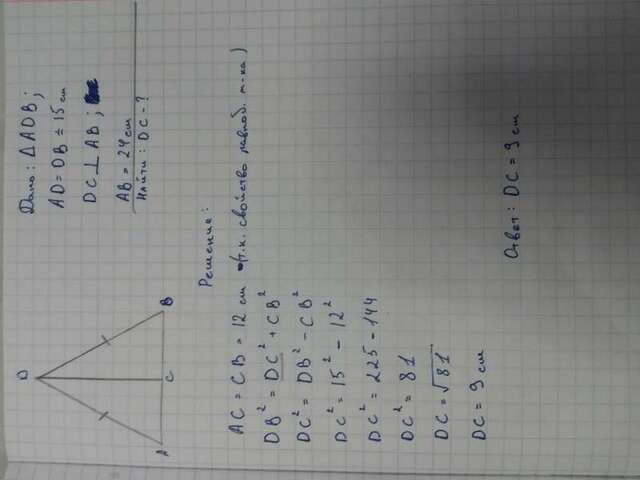 D
A
C
B
Дано: ΔADB;
AD = DB = 15 cm
DC ⊥ AB;
AB = 24 cm
Найти: DC - ?
Решение:
AC = CB = 12 cm (т.к. свойство равноб. т-ка)
DB² = DC² + CB²
DC² = DB² - CB²
DC² = 15² - 12²
DC² = 225 - 144
DC² = 81
DC = √81
DC = 9 cm
Ответ: DC = 9 cm